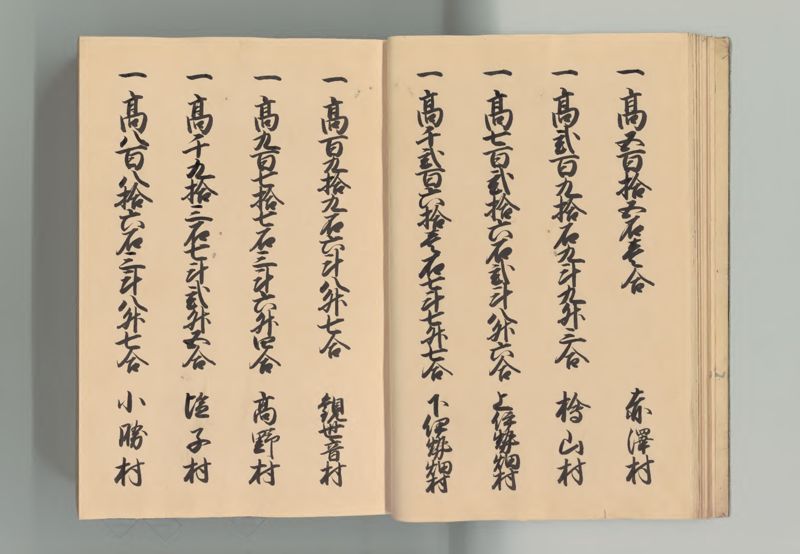 一 高五百拾五石壱合 赤澤村
一 高弐百九拾石九斗九升三合 檜山村
一 高七百弐拾六石弐斗八升六合 上伊勢畑村
一 高千弐百六拾壱石七斗七升七合 下伊勢畑村
一 高百九拾九石六斗八升七合 観世音村
一 高九百七拾七石三斗六升四合 高野村
一 高千九拾三石七斗弐升五合 塩子村
一 高八百八拾六石三斗八升七合 小勝村